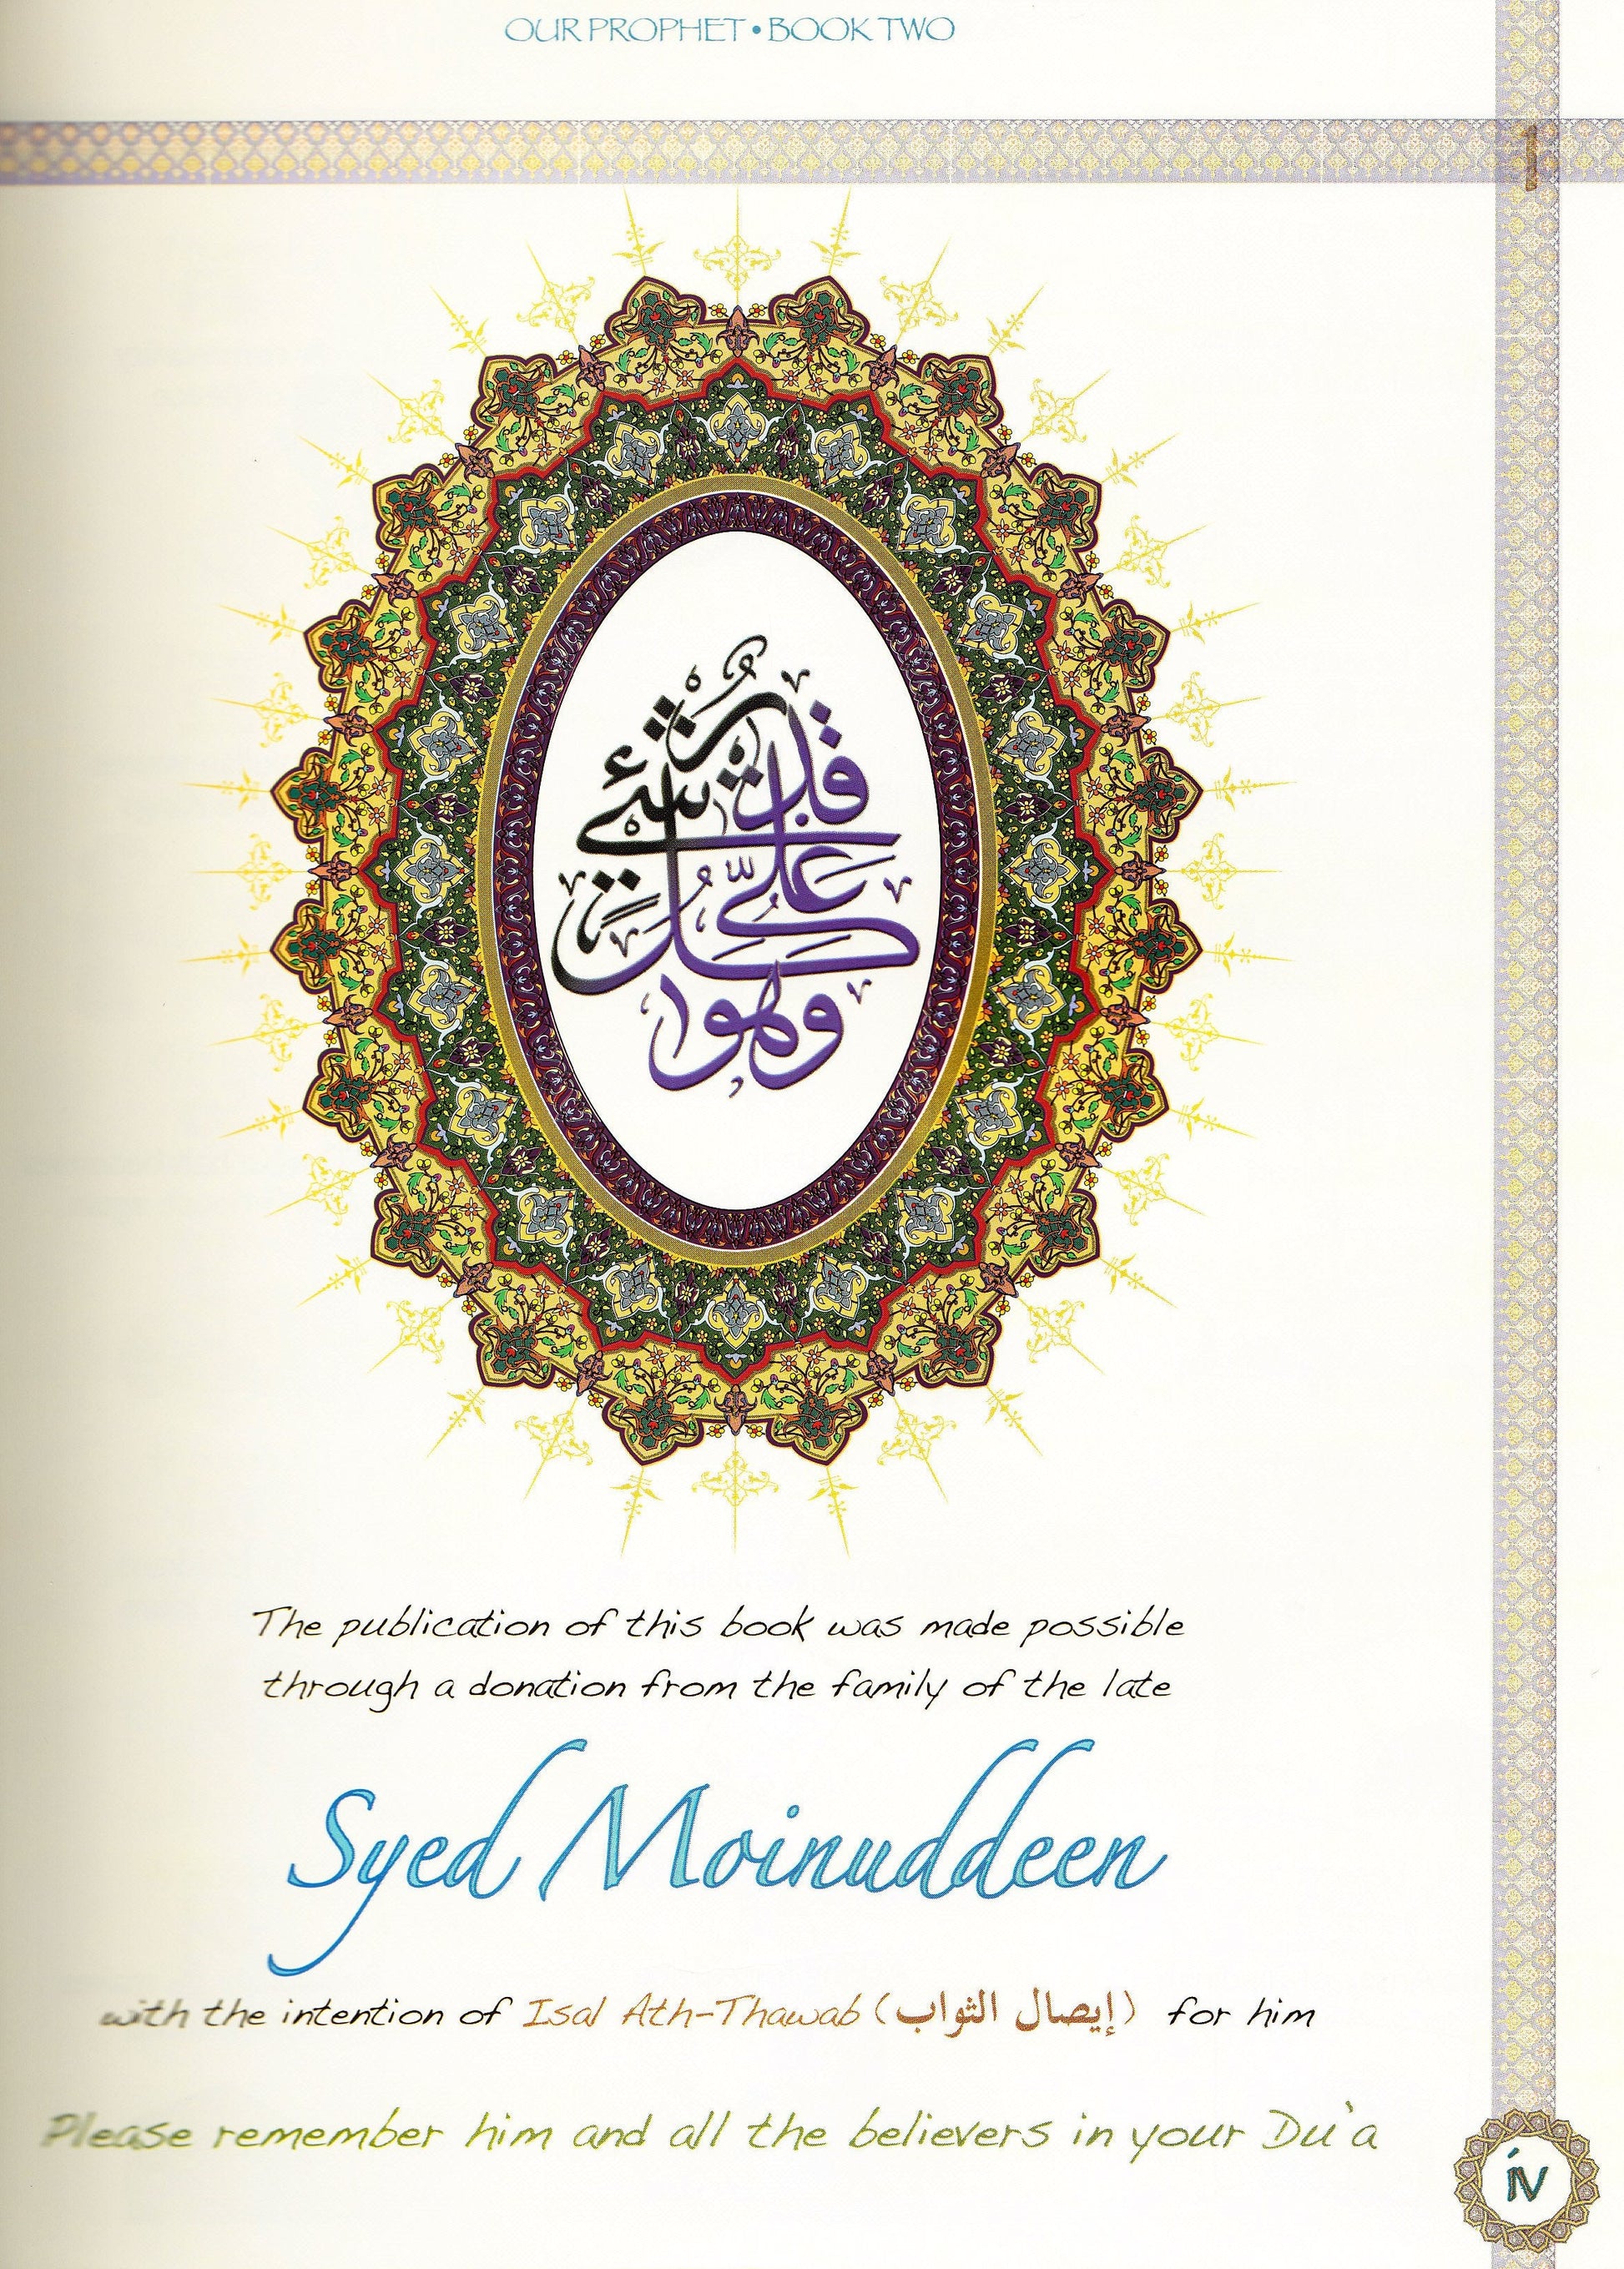 OUR PROPHET • BOOK TWO
1
وهو على كل شيء قدير
The publication of this book was made possible
through a donation from the family of the late
Syed Moinuddeen
with the intention of Isal Ath-Thawab (إيصال الثواب) for him
Please remember him and all the believers in your Du'a
iv